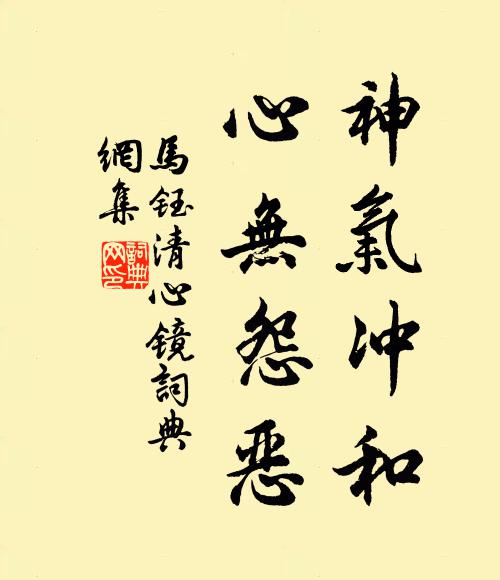 神氣冲和
心無怨恶
馬鈺清心镜詞典
網集
詞典
网印